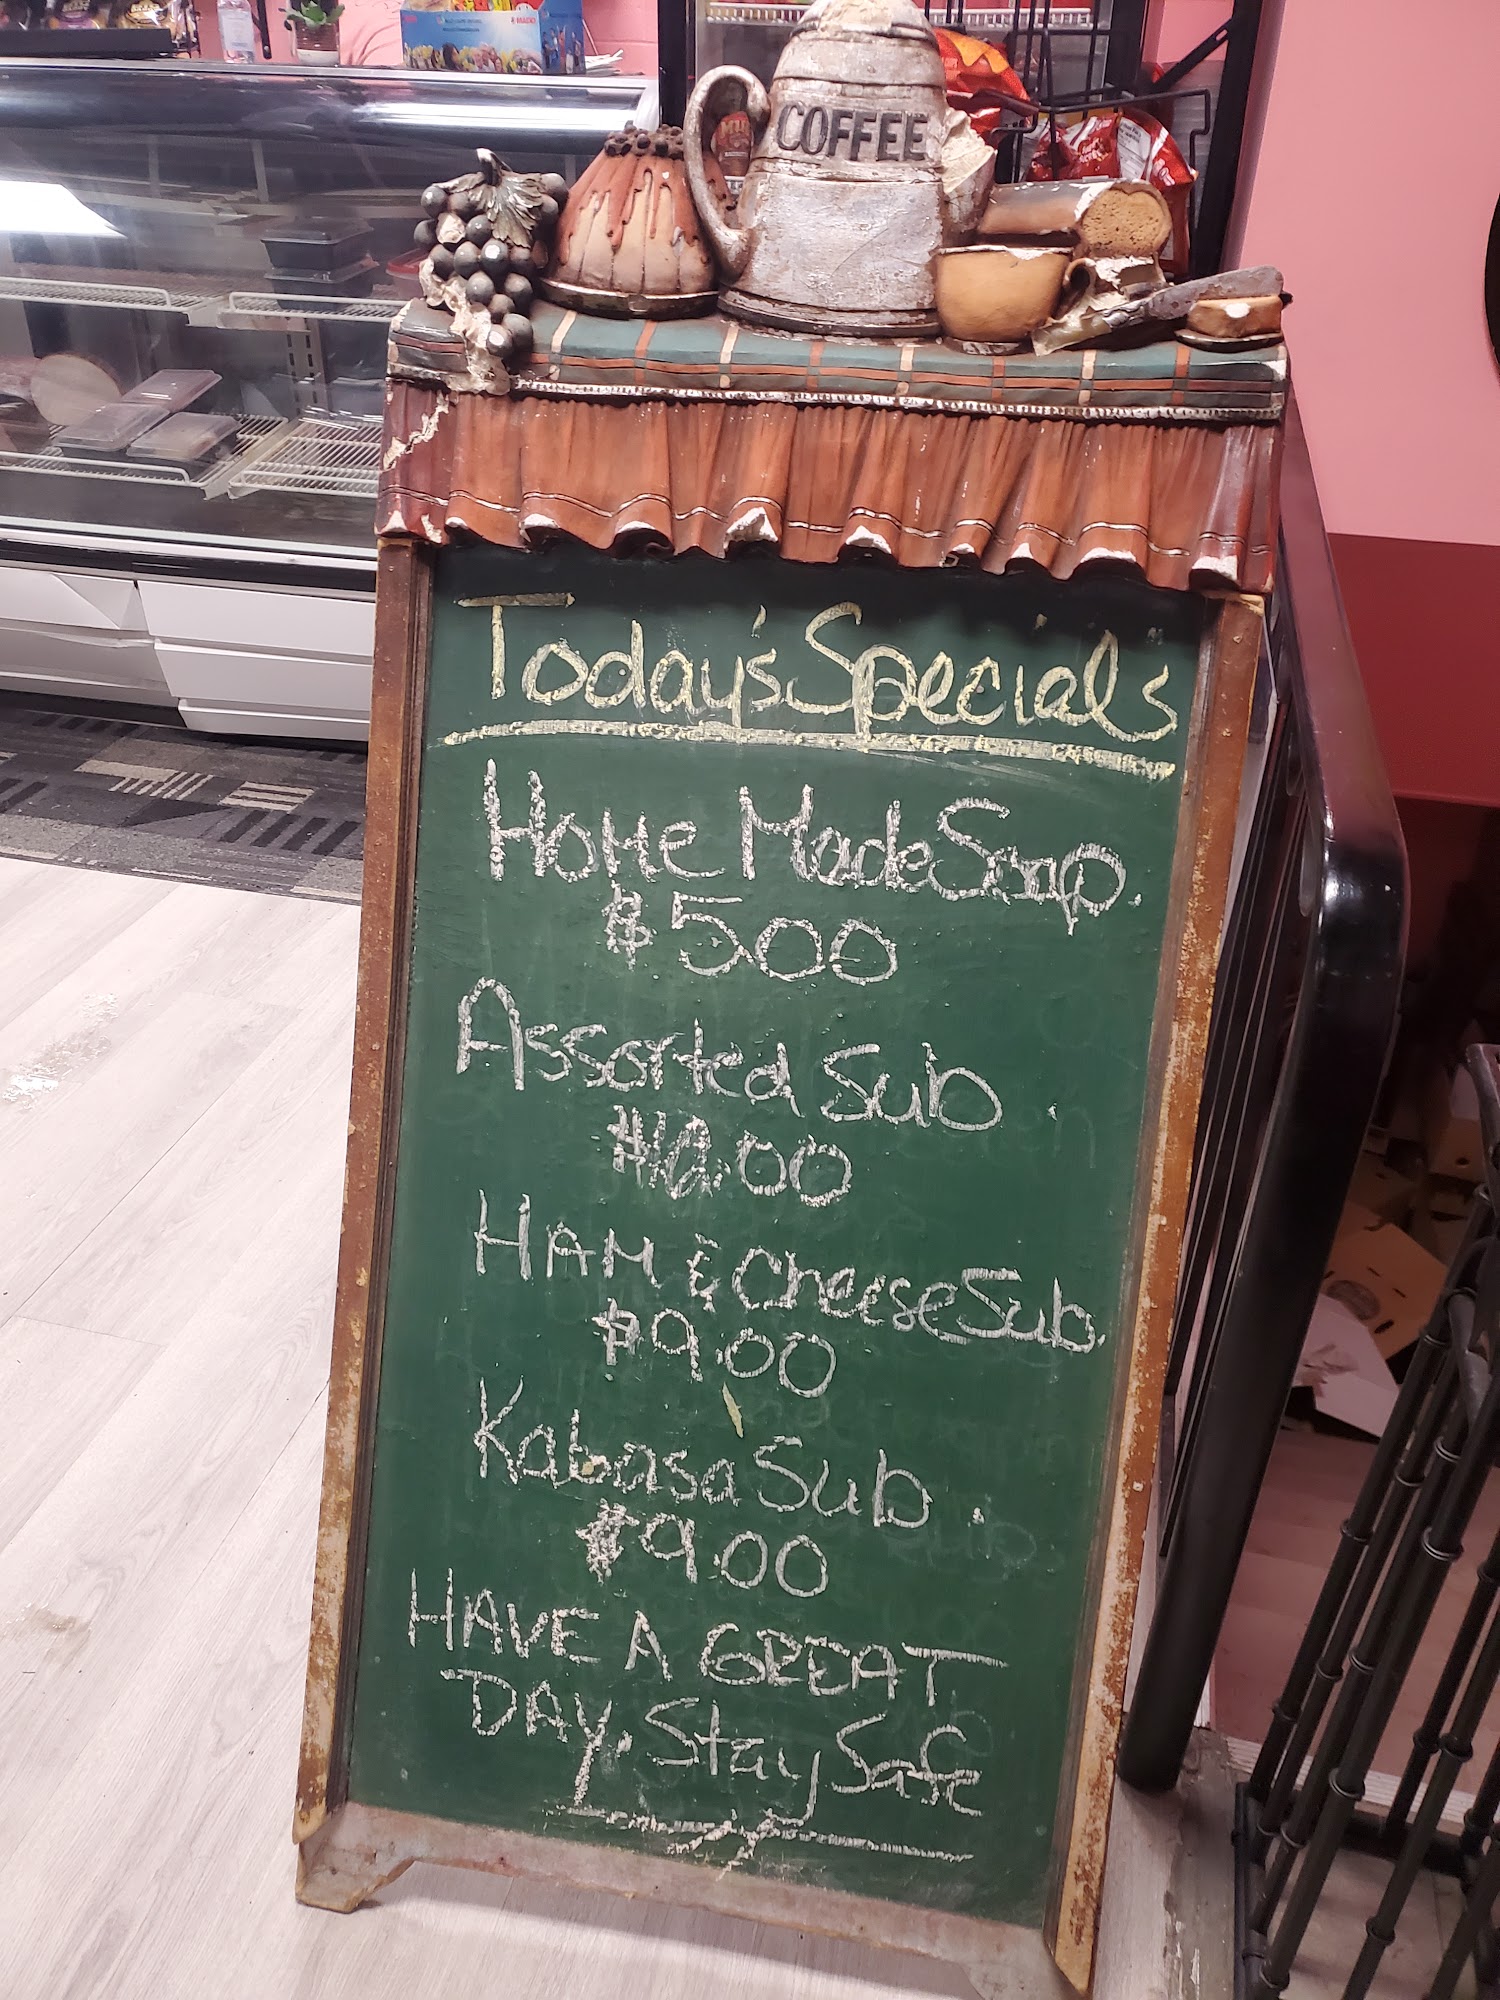 COFFEE
Today's Specials
Home Made Soup.
$5.00
Assorted Sub.
Ham & Cheese Sub.
$9.00
Kabasa Sub.
$9.00
HAVE A GREAT
DAY, Stay Safe